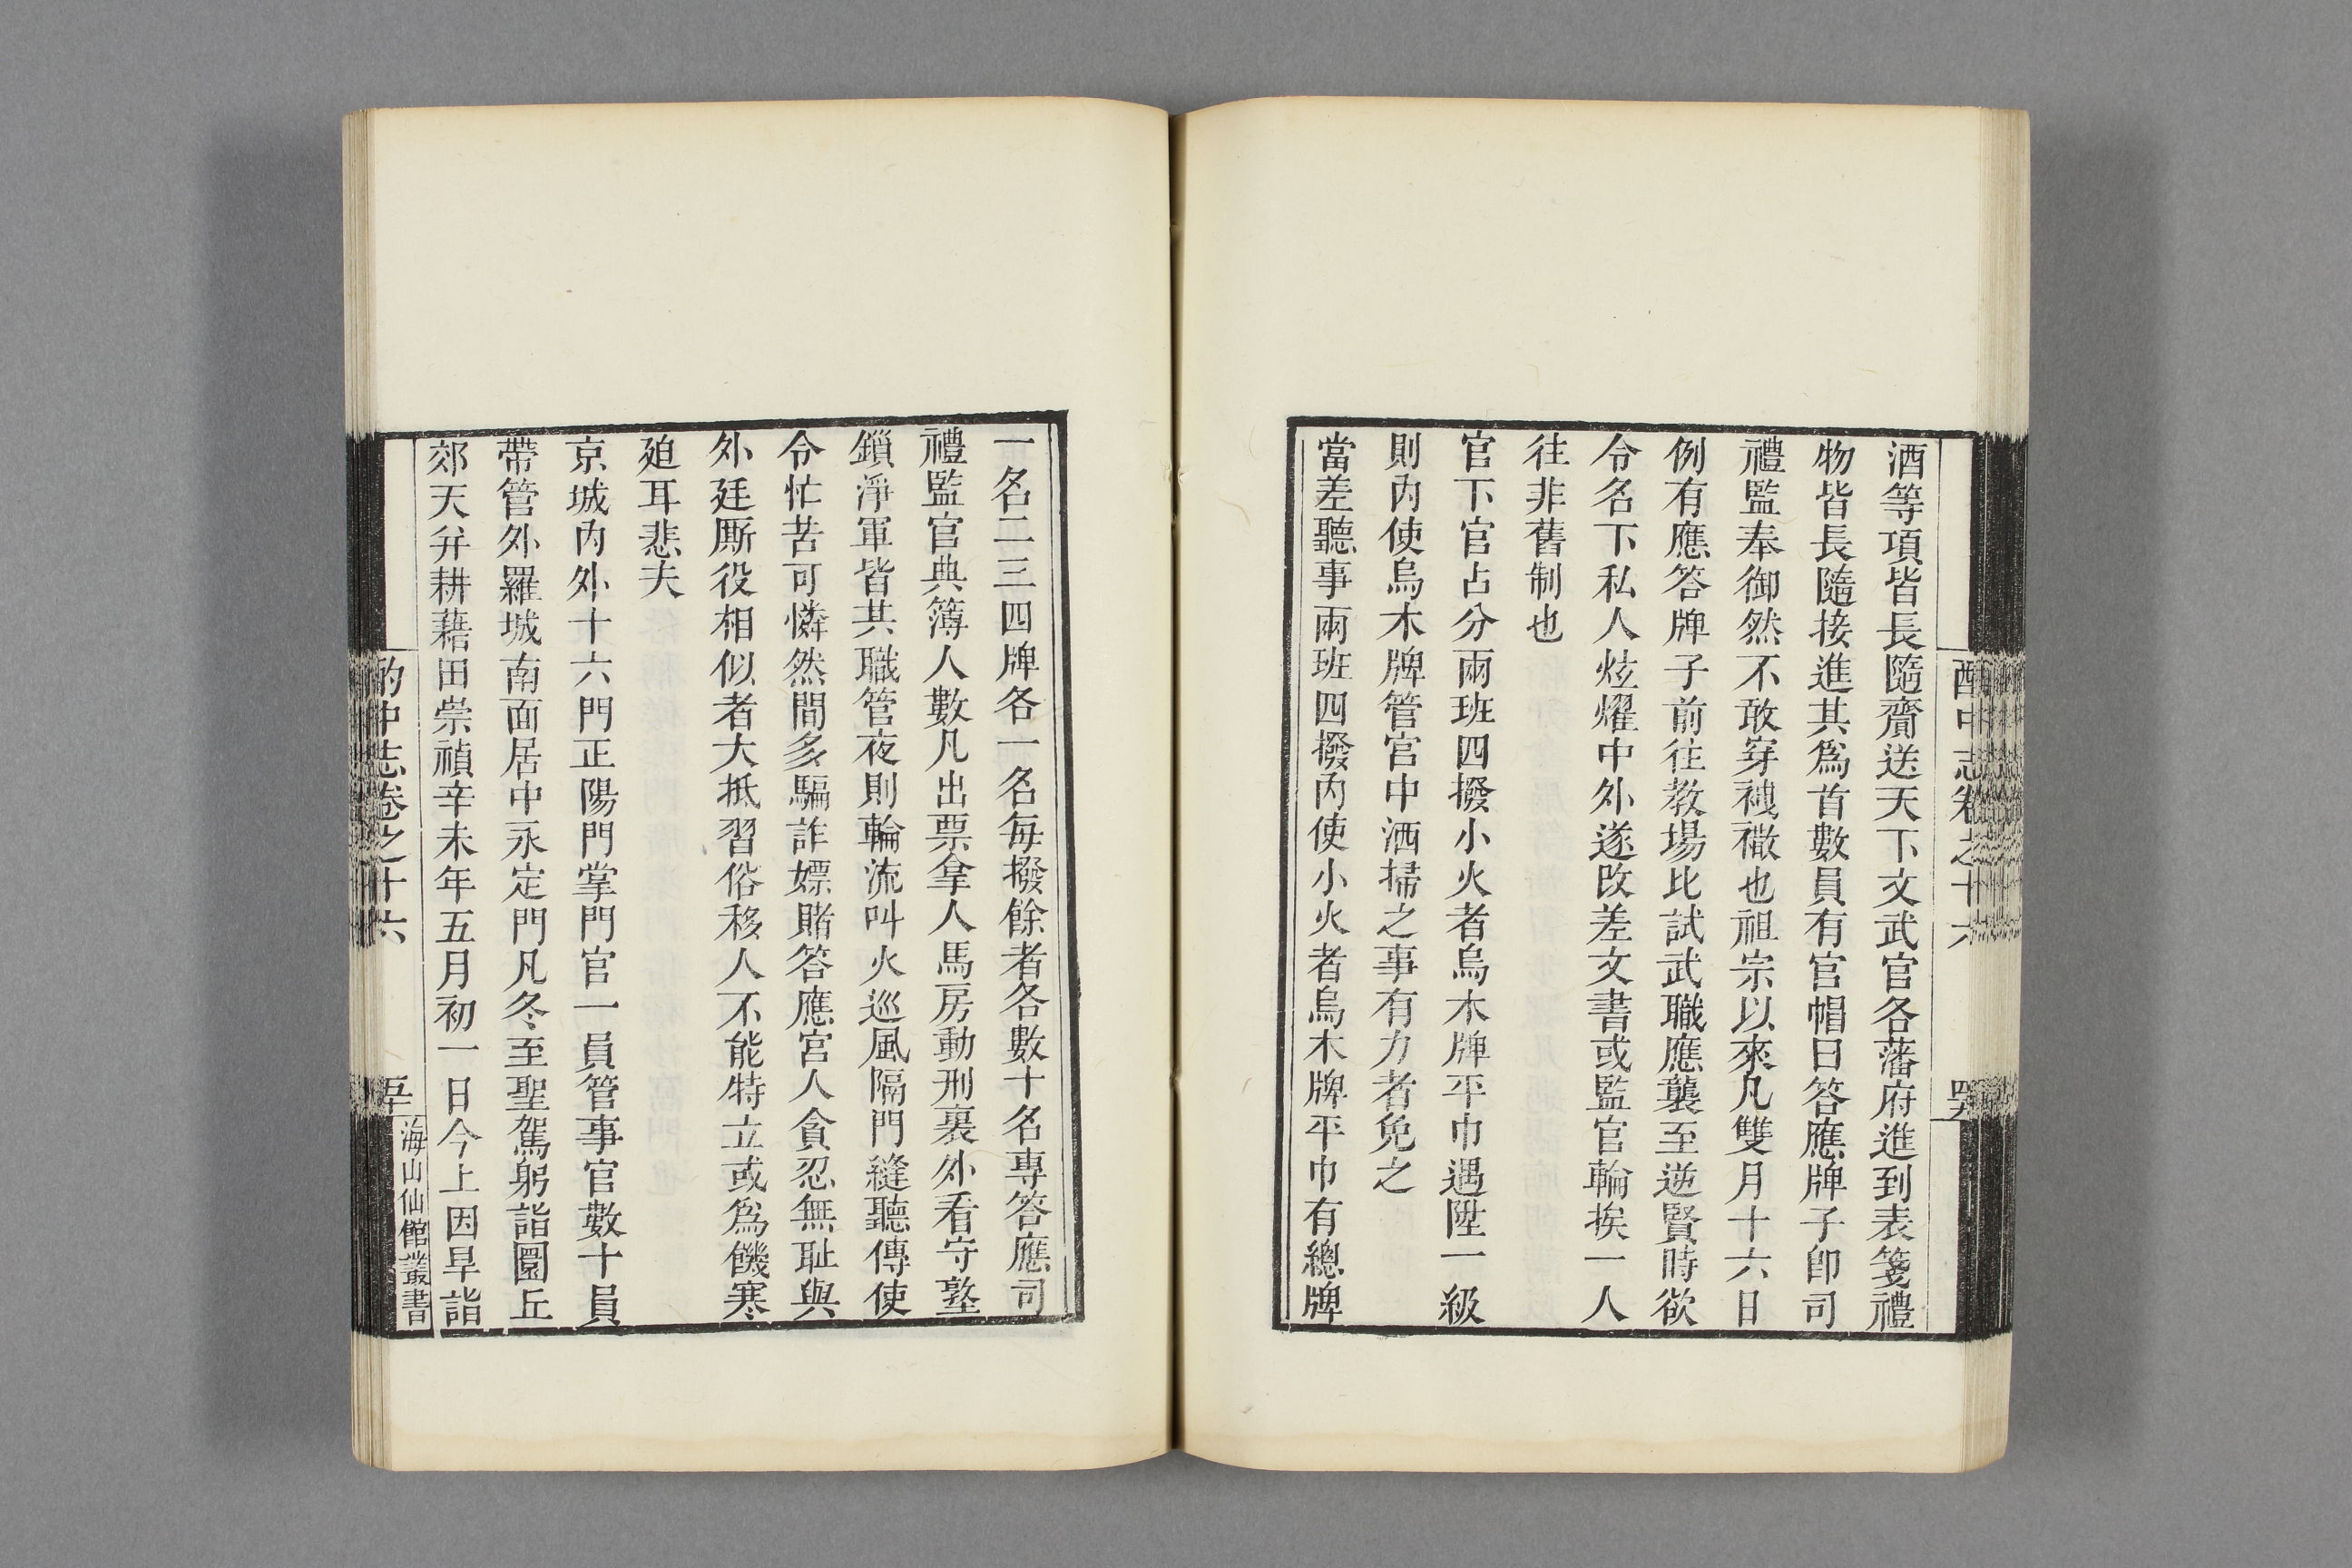 酒等項皆長隨齎送天下文武官各藩府進到表箋禮
物皆長隨接進其爲首數員有官帽曰答應牌子卽司
禮監奉御然不敢穿襪𧞫也祖宗以來凡雙月十六日
例有應答牌子前往教場比試武職應襲至逆賢時欲
令名下私人炫燿中外遂改差文書或監官輪挨一人
往非舊制也
官下官占分兩班四撥小火者烏木牌平巾遇陞一級
則內使烏木牌管宮中洒掃之事有力者免之
當差聽事兩班四撥內使小火者烏木牌平巾有總牌
酌中志卷之十六
一名二三四牌各一名每撥餘者各數十名專答應司
禮監官典簿人數凡出票拿人馬房動刑裏外看守墊
鎖淨軍皆其職管夜則輪流叫火巡風隔門縫聽傳使
令忙苦可憐然間多騙詐嫖賭答應宮人貪忍無恥與
外廷厮役相似者大抵習俗移人不能特立或爲饑寒
廹耳悲夫
京城內外十六門正陽門掌門官一員管事官數十員
帶管外羅城南面居中永定門凡冬至聖駕躬詣圜丘
郊天幷耕藉田崇禎辛未年五月初一日今上因旱詣
酌中志卷之十六
海山仙館叢書